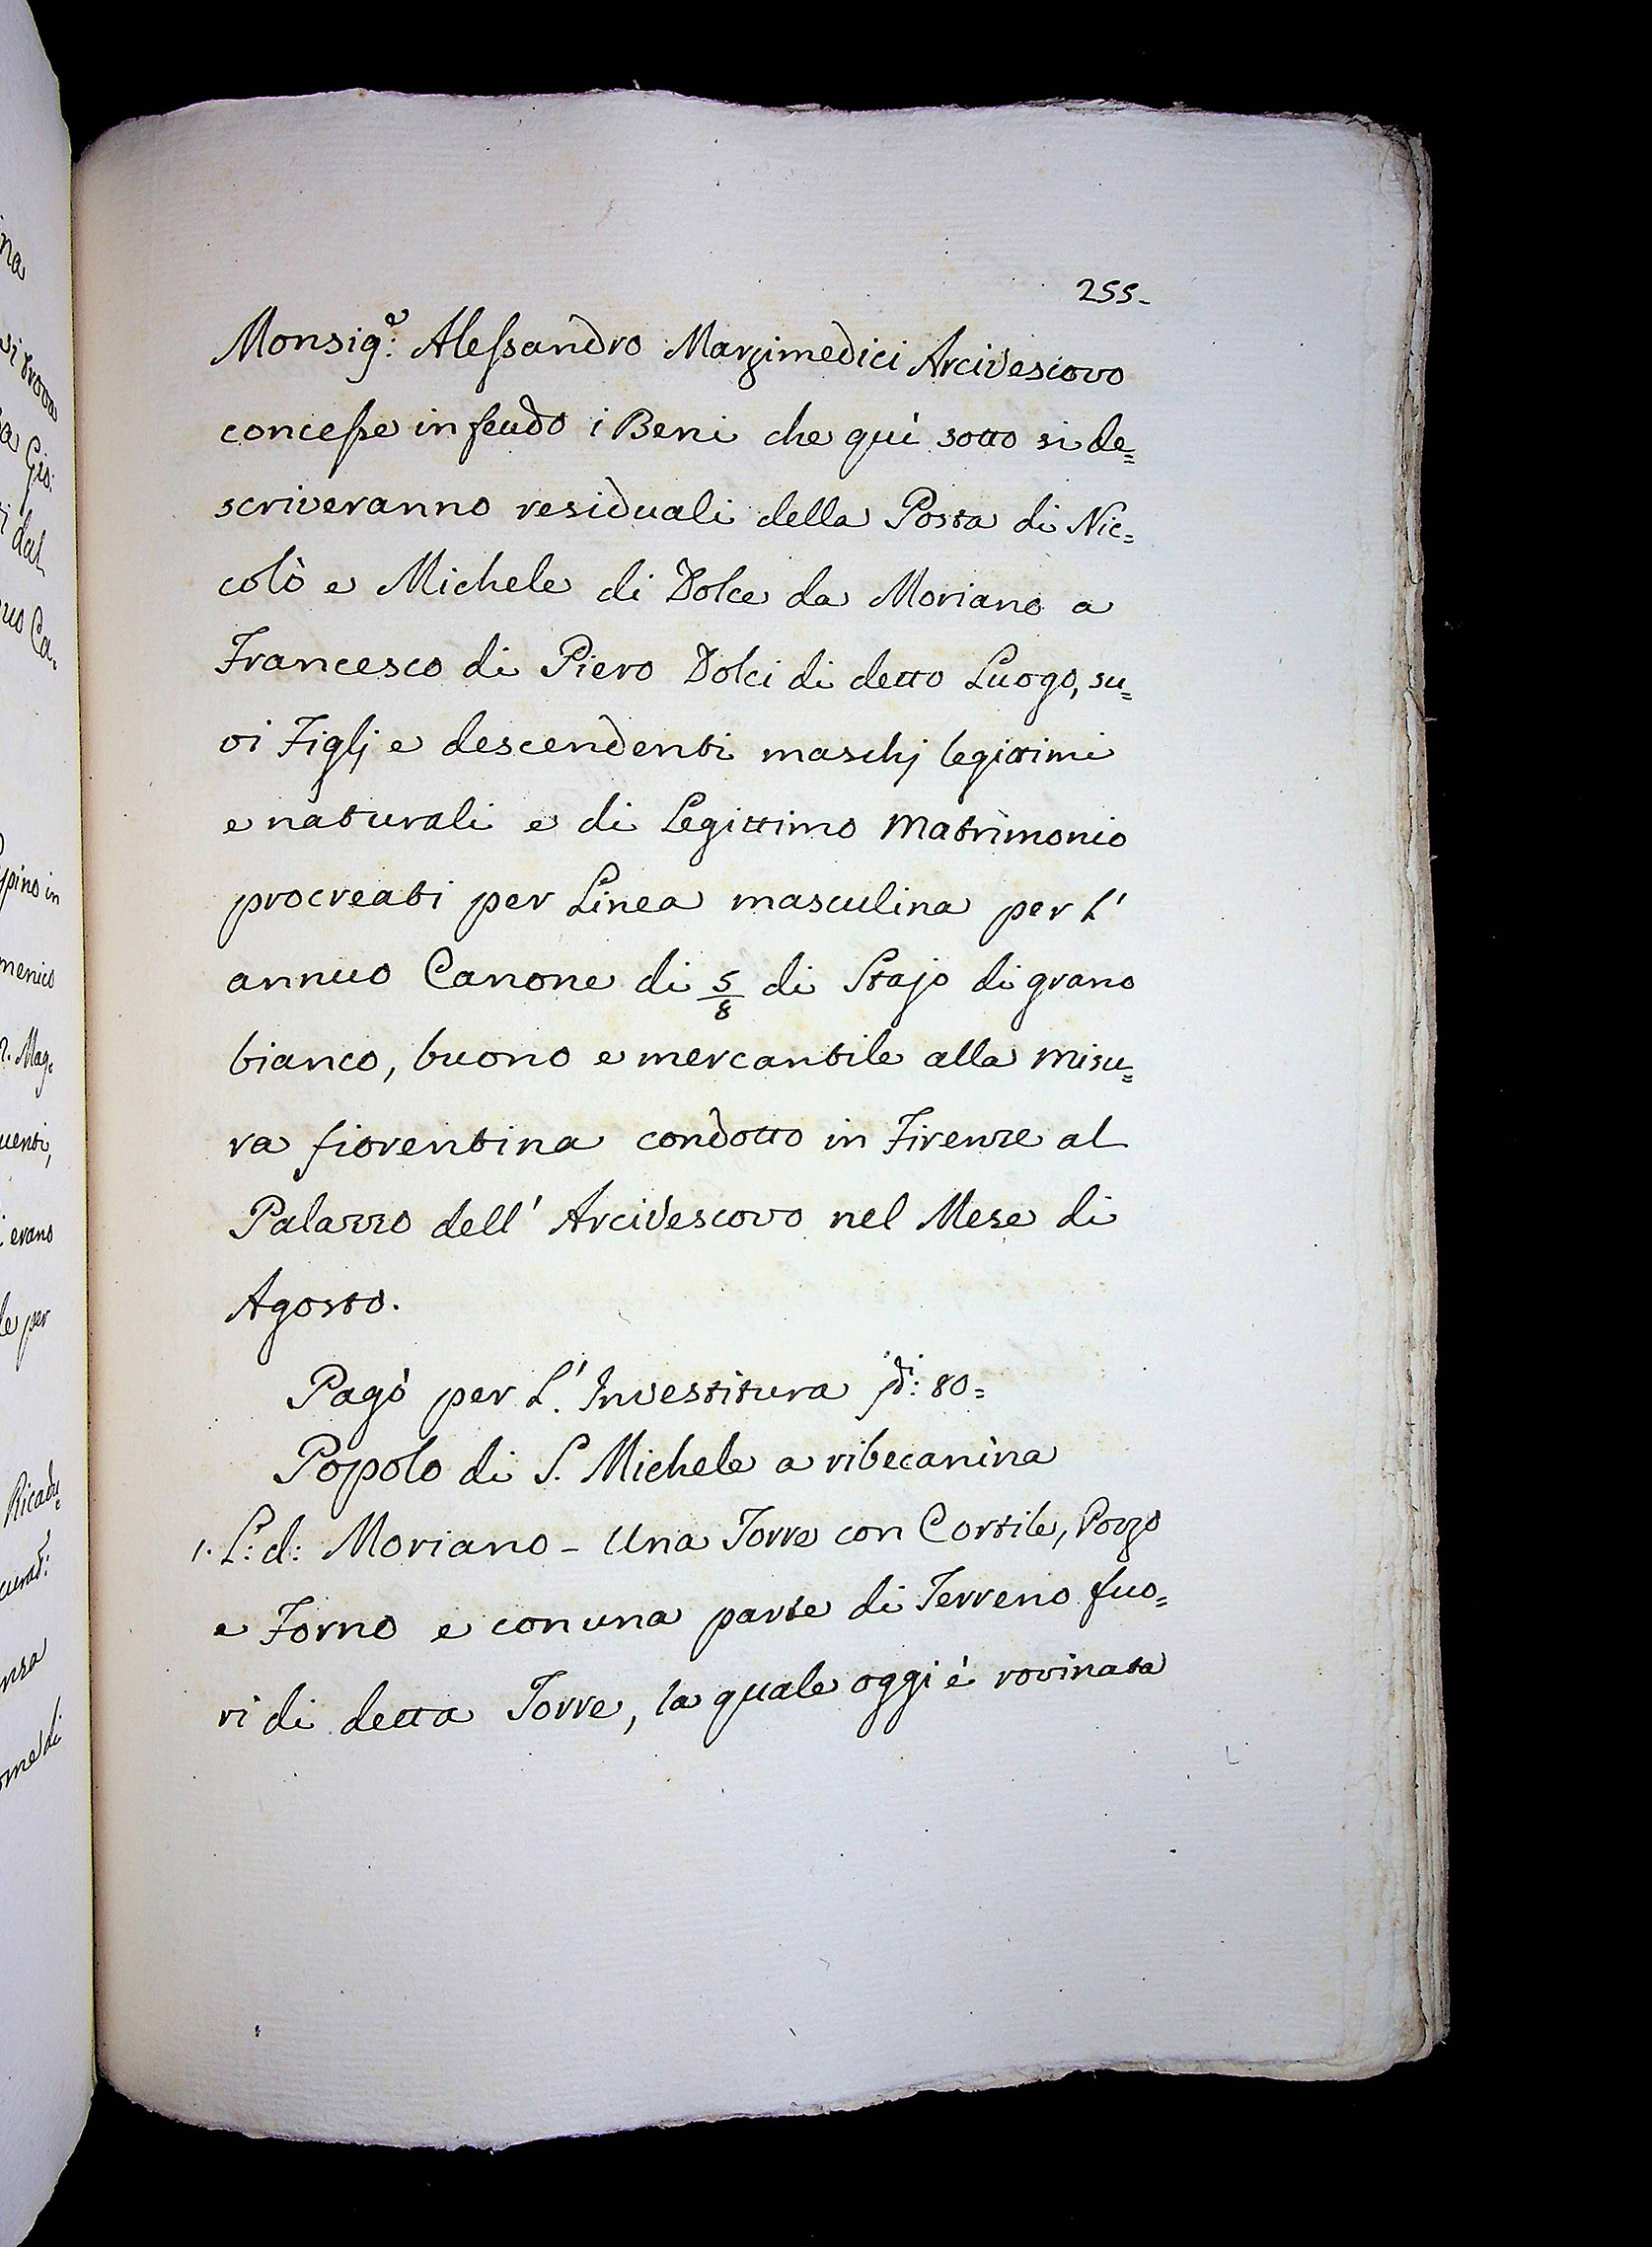 255.
Monsig.e Alessandro Marzimedici Arcivescovo
concesse in feudo i Beni che quì sotto si de=
scriveranno residuali della Posta di Nic=
colò e Michele di Dolce da Moriano a
Francesco di Piero Dolci di detto Luogo, su=
oi Figlj e descendenti maschj legittimi
e naturali e di Legittimo Matrimonio
procreati per Linea masculina per L'
annuo Canone di 5/8 di Stajo di grano
bianco, buono e mercantile alla misu=
ra fiorentina condotto in Firenze al
Palazzo dell' Arcivescovo nel Mese di
Agosto.
Pagò per L'Investitura : 80=
Popolo di S. Michele a ribecanina
1. L: d: Moriano - Una Torre con Cortile, Pozzo
e Forno e con una parte di Terreno fuo=
ri di detta Torre, la quale oggi è rovinata